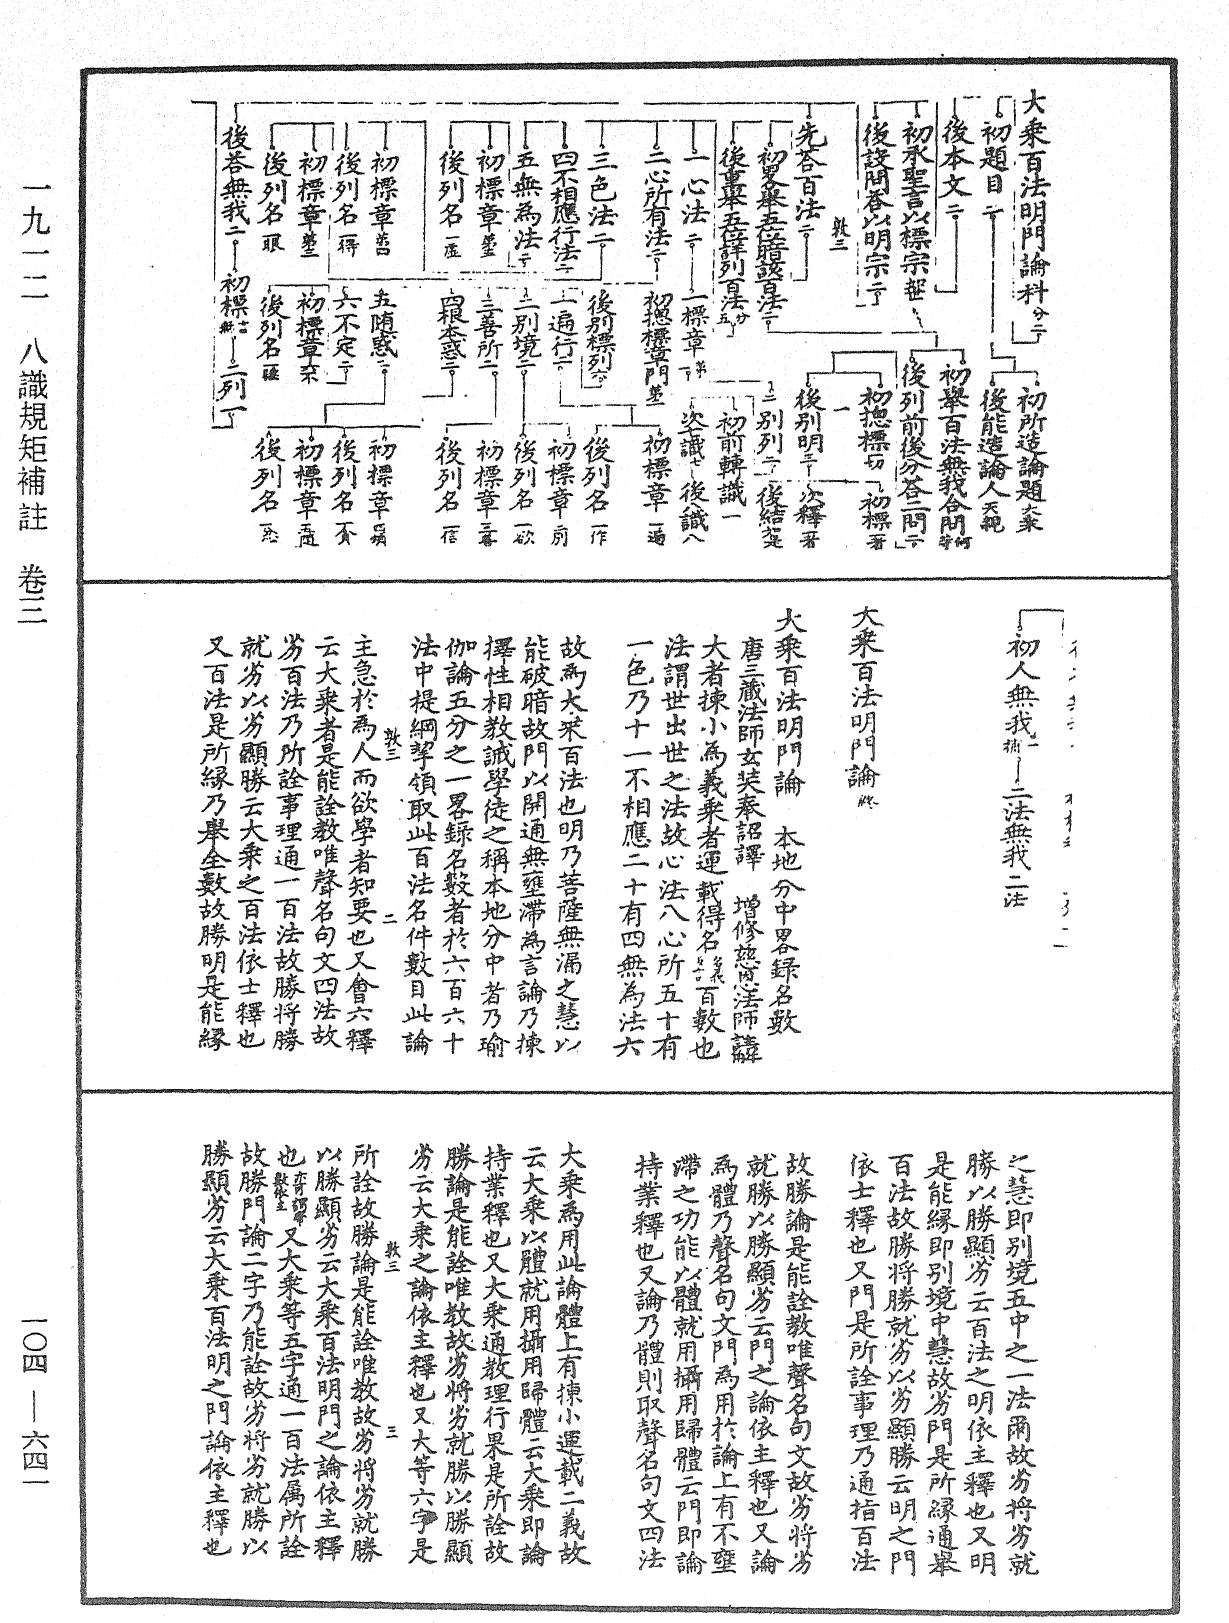 一九一二 八識規矩補註 卷三
一〇四—六四一
大乘百法明門論科 分二
初題目 二
後本文 二
初承聖言以標宗
後設問荅以明宗 二
敦三
先荅百法 二
初畧舉五位暗該百法 二
後重舉五位詳列百法 分五
一心法 二
二心所有法 二
三色法 二
四不相應行法 二
五無為法 二
初標章
後列名 一虛
初標章
後列名 一得
初標章
後列名 一眼
後荅無我 二
初所造論題 大乘
後能造論人 天親
初舉百法無我合問
後列前後分荅二問 二
初揔標 一切
後別明 三
初標
次釋
後結
一標章
二別列 二
初前轉識 一
次七識 七
後八識 八
初揔標章門
後別標列 六
初標章
後列名 一作
一遍行 二
二別境 二
三善所 二
四根本惑 二
五随惑 二
六不定 二
初標章
後列名 一欲
初標章
後列名 一信
初標章
後列名 一貪
初標章
後列名
初標章
後列名
初標
二列
初人無我
二法無我 二法
大乘百法明門論 終
大乘百法明門論 本地分中畧録名數
唐三藏法師玄奘奉詔譯 增修慈恩法師註解
大者揀小為義乘者運載得名 百數也
法謂世出世之法故心法八心所五十有
一色乃十一不相應二十有四無為法六
故為大乘百法也明乃菩薩無漏之慧以
能破暗故門以開通無壅滯為言論乃揀
擇性相教誡學徒之稱本地分中者乃瑜
伽論五分之一畧録名數者於六百六十
法中提綱挈領取此百法名件數目此論
敦三 二
主急於為人而欲學者知要也又會六釋
云大乘者是能詮教唯聲名句文四法故
劣百法乃所詮事理通一百法故勝將勝
就劣以劣顯勝云大乘之百法依士釋也
又百法是所緣乃舉全數故勝明是能緣
之慧即別境五中之一法爾故劣將劣就
勝以勝顯劣云百法之明依主釋也又明
是能緣即別境中慧故劣門是所緣通舉
百法故勝將勝就劣以劣顯勝云明之門
依士釋也又門是所詮事理乃通指百法
故勝論是能詮教唯聲名句文故劣將劣
就勝以勝顯劣云門之論依主釋也又論
為體乃聲名句文門為用於論上有不壅
滯之功能以體就用攝用歸體云門即論
持業釋也又論乃體則取聲名句文四法
大乘為用此論體上有揀小運載二義故
云大乘以體就用攝用歸體云大乘即論
持業釋也又大乘通教理行果是所詮故
勝論是能詮唯教故劣將劣就勝以勝顯
劣云大乘之論依主釋也又大等六字是
敦三 三
所詮故勝論是能詮唯教故劣將劣就勝
以勝顯劣云大乘百法明門之論依主釋
也 又大乘等五字通一百法屬所詮
故勝門論二字乃能詮故劣將劣就勝以
勝顯劣云大乘百法明之門論依主釋也